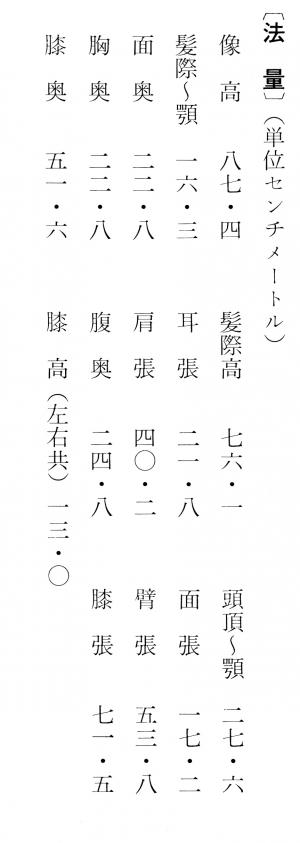 〔法量〕（単位センチメートル）
像高 八七・四 髪際高 七六・一 頭頂〜顎 二七・六
髪際〜顎 一六・三 耳張 二一・八 面張 一七・二
面奥 二二・八 肩張 四〇・二 臂張 五三・八
胸奥 二二・八 腹奥 二四・八 膝張 七一・五
膝奥 五一・六 膝高（左右共）一三・〇